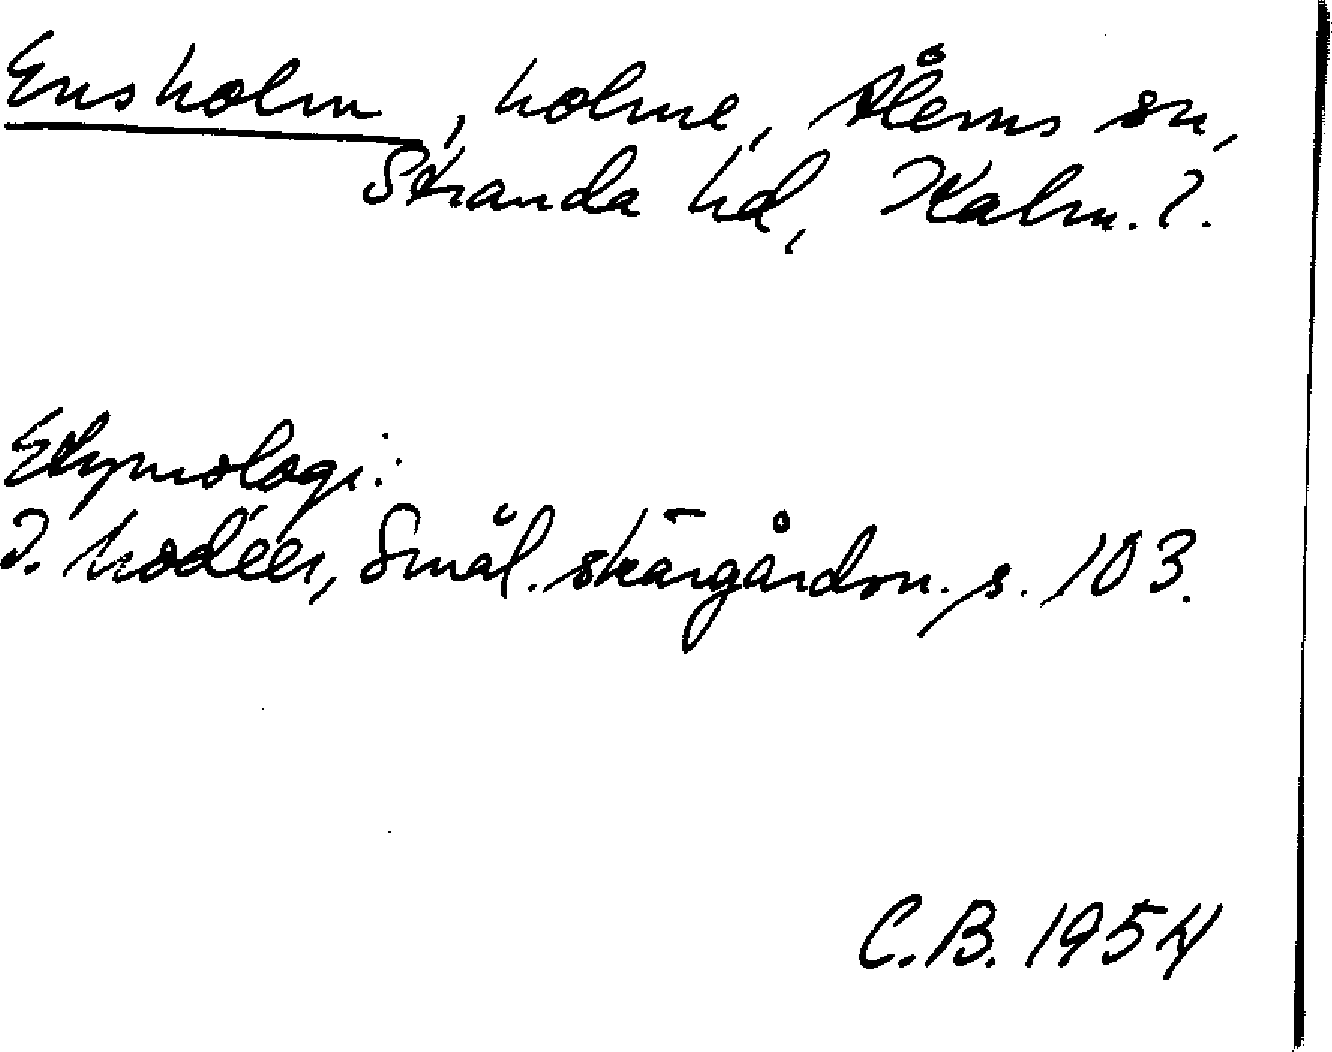 Ensholm, holme, Ålems sn,
Stranda hd, Kalm. l.
Etymologi:
I. Modéer, Smål. skärgårdsn. s. 103.
C.B. 1954